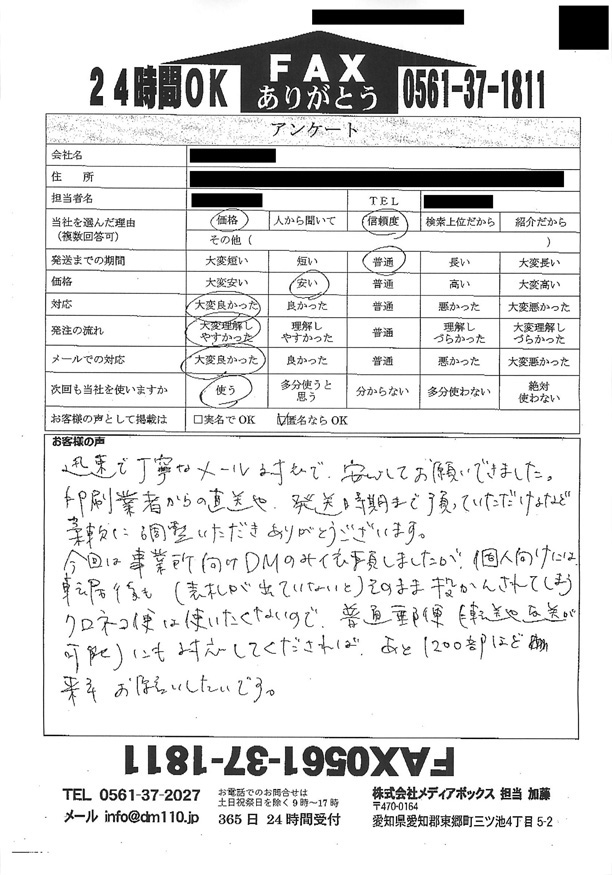 24時間OK
FAX
ありがとう
0561-37-1811
アンケート
会社名
住 所
担当者名 TEL
当社を選んだ理由
(複数回答可)
価格 人から聞いて 信頼度 検索上位だから 紹介だから
その他( )
発送までの期間 大変短い 短い 普通 長い 大変長い
価格 大変安い 安い 普通 高い 大変高い
対応 大変良かった 良かった 普通 悪かった 大変悪かった
発注の流れ 大変理解しやすかった 理解しやすかった 普通 理解しづらかった 大変理解しづらかった
メールでの対応 大変良かった 良かった 普通 悪かった 大変悪かった
次回も当社を使いますか 使う 多分使うと思う 分からない 多分使わない 絶対使わない
お客様の声として掲載は □実名でOK ☑匿名ならOK
お客様の声
迅速で丁寧なメール対応で、安心してお願いできました。
印刷業者からの直送や、発送時期まで預っていただけるなど
柔軟に調整いただきありがとうございます。
今回は事業所向けDMのみ依頼しましたが、個人向けには、
転居後も(表札が出ていないと)そのまま投かんされてしまう
クロネコ便は使いたくないので、普通郵便(転送や返送が
可能)にも対応してくだされば、あと1200部ほど
来年お願いしたいです。
FAX0561-37-1811
TEL 0561-37-2027
メール info@dm110.jp
お電話でのお問合せは
土日祝祭日を除く9時〜17時
365日 24時間受付
株式会社メディアボックス 担当 加藤
〒470-0164
愛知県愛知郡東郷町三ツ池4丁目5-2